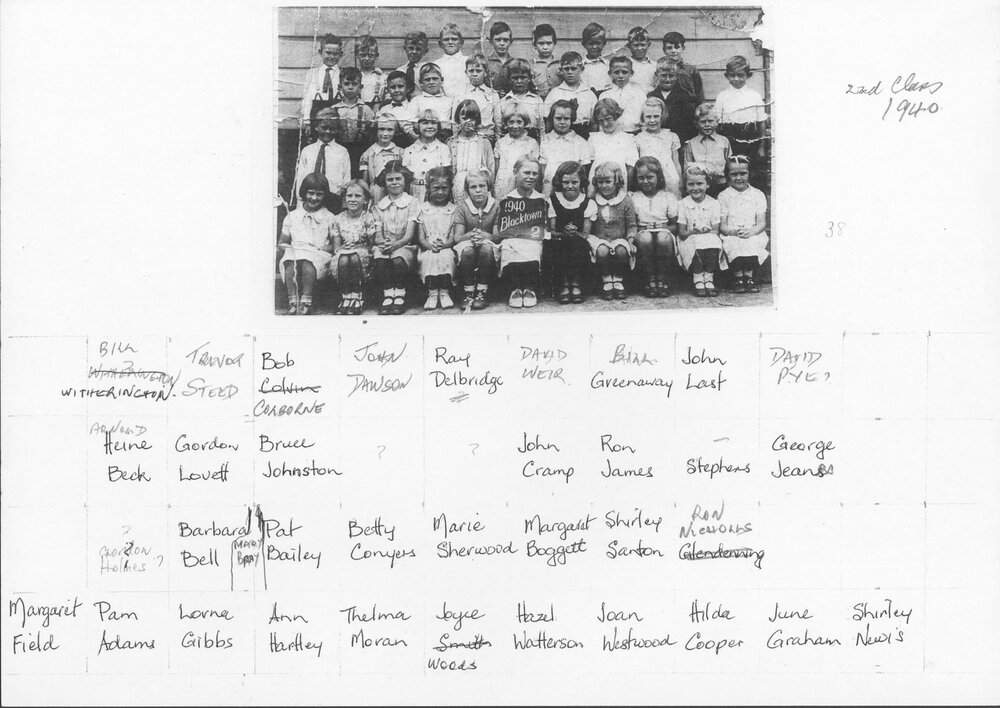 2nd Class
1940
1940
Blacktown
2
38
BILL TREVOR Bob JOHN Ray DAVID BILL John DAVID
? WITHERINGTON STEED Colvine DAWSON Delbridge WEIR. Greenaway Last PYE?
WITHERINGTON. COLBORNE
ARNOLD
Heine Gordon Bruce ? ? John Ron – George
Beck Lovett Johnston Cramp James Stephens Jeans
? Barbara Pat Betty Marie Margaret Shirley RON NICHOLLS
GORDON Holmes? Bell MARY BRAY Bailey Conyers Sherwood Boggett Santon Glendenning
Margaret Pam Lorna Ann Thelma Joyce Hazel Joan Hilda June Shirley
Field Adams Gibbs Hartley Moran Smith Watterson Westwood Cooper Graham Newis
WOODS